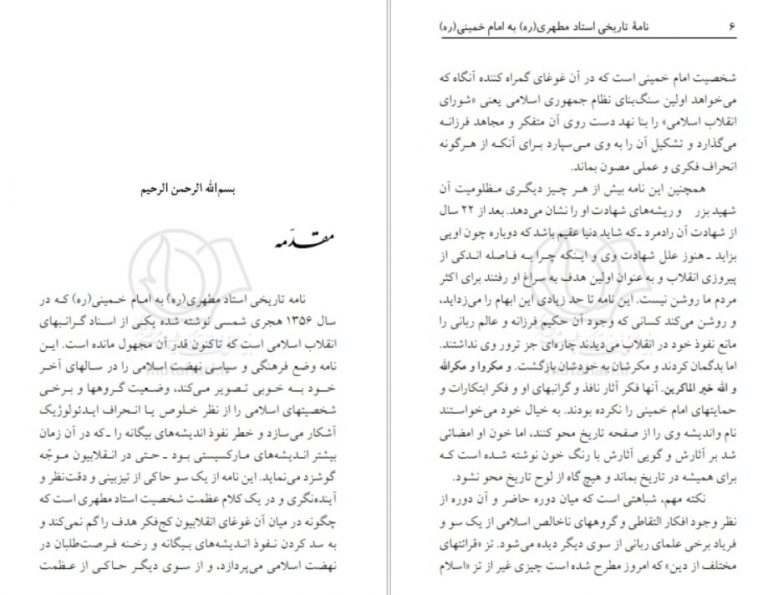 بسم‌الله الرحمن الرحیم
مقدّمه
نامه تاریخی استاد مطهری(ره) به امام خمینی(ره) که در
سال ۱۳۵۶ هجری شمسی نوشته شده یکی از اسناد گرانبهای
انقلاب اسلامی است که تاکنون قدر آن مجهول مانده است. این
نامه وضع فرهنگی و سیاسی نهضت اسلامی را در سالهای آخر
خود به خوبی تصویر می‌کند، وضعیت گروهها و برخی
شخصیتهای اسلامی را از نظر خلوص یا انحراف ایدئولوژیک
آشکار می‌سازد و خطر نفوذ اندیشه‌های بیگانه را ـ که در آن زمان
بیشتر اندیشه‌های مارکسیستی بود ـ حتی در انقلابیون موجّه
گوشزد می‌نماید. این نامه از یک سو حاکی از تیزبینی و دقت‌نظر و
آینده‌نگری و در یک کلام عظمت شخصیت استاد مطهری است که
چگونه در میان آن غوغای انقلابیون کج‌فکر هدف را گم نمی‌کند و
به سد کردن نفوذ اندیشه‌های بیگانه و رخنه فرصت‌طلبان در
نهضت اسلامی می‌پردازد، و از سوی دیگر حاکی از عظمت
۶ نامهٔ تاریخی استاد مطهری(ره) به امام خمینی(ره)
شخصیت امام خمینی است که در آن غوغای گمراه کننده آنگاه که
می‌خواهد اولین سنگ‌بنای نظام جمهوری اسلامی یعنی «شورای
انقلاب اسلامی» را بنا نهد دست روی آن متفکر و مجاهد فرزانه
می‌گذارد و تشکیل آن را به وی می‌سپارد برای آنکه از هرگونه
انحراف فکری و عملی مصون بماند.
همچنین این نامه بیش از هر چیز دیگری مظلومیت آن
شهید بزر و ریشه‌های شهادت او را نشان می‌دهد. بعد از ۲۲ سال
از شهادت آن رادمرد ـ که شاید دنیا عقیم باشد که دوباره چون اویی
بزاید ـ هنوز علل شهادت وی و اینکه چرا به فاصله اندکی از
پیروزی انقلاب و به عنوان اولین هدف به سراغ او رفتند برای اکثر
مردم ما روشن نیست. این نامه تا حد زیادی این ابهام را می‌زداید،
و روشن می‌کند کسانی که وجود آن حکیم فرزانه و عالم ربانی را
مانع نفوذ خود در انقلاب می‌دیدند چاره‌ای جز ترور وی نداشتند.
اما بدگمان کردند و مکرشان به خودشان بازگشت. و مکروا و مکرالله
و الله خیر الماکرین. آنها فکر آثار نافذ و گرانبهای او و فکر ابتکارات و
حمایتهای امام خمینی را نکرده بودند. به خیال خود می‌خواستند
نام واندیشه وی را از صفحه تاریخ محو کنند، اما خون او امضائی
شد بر آثارش و گویی آثارش با رنگ خون نوشته شده است که
برای همیشه در تاریخ بماند و هیچ گاه از لوح تاریخ محو نشود.
نکته مهم، شباهتی است که میان دوره حاضر و آن دوره از
نظر وجود افکار التقاطی و گروههای ناخالص اسلامی از یک سو و
فریاد برخی علمای ربانی از سوی دیگر دیده می‌شود. تز «قرائتهای
مختلف از دین» که امروز مطرح شده است چیزی غیر از تز «اسلام